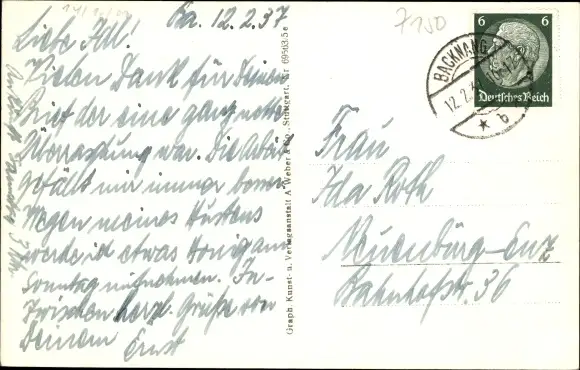 Ba. 12.2.37
Liebe Idl!
Vielen Dank für Deinen
Brief der eine ganz nette
Überraschung war. Die Arbeit
gefällt mir immer besser.
Wegen meines Hustens
werde ich etwas Honig am
Sonntag aufnehmen. In-
zwischen herzl. Grüße von
Deinem
Ernst
Graph. Kunst- u. Verlagsanstalt A. Weber & Co., Stuttgart, Nr 69503.5e
7150
6 6
Deutsches Reich
BACKNANG
12.2.37
b
Frau
Ida Roth
Neuenbürg-Enz
Bahnhofstr. 36